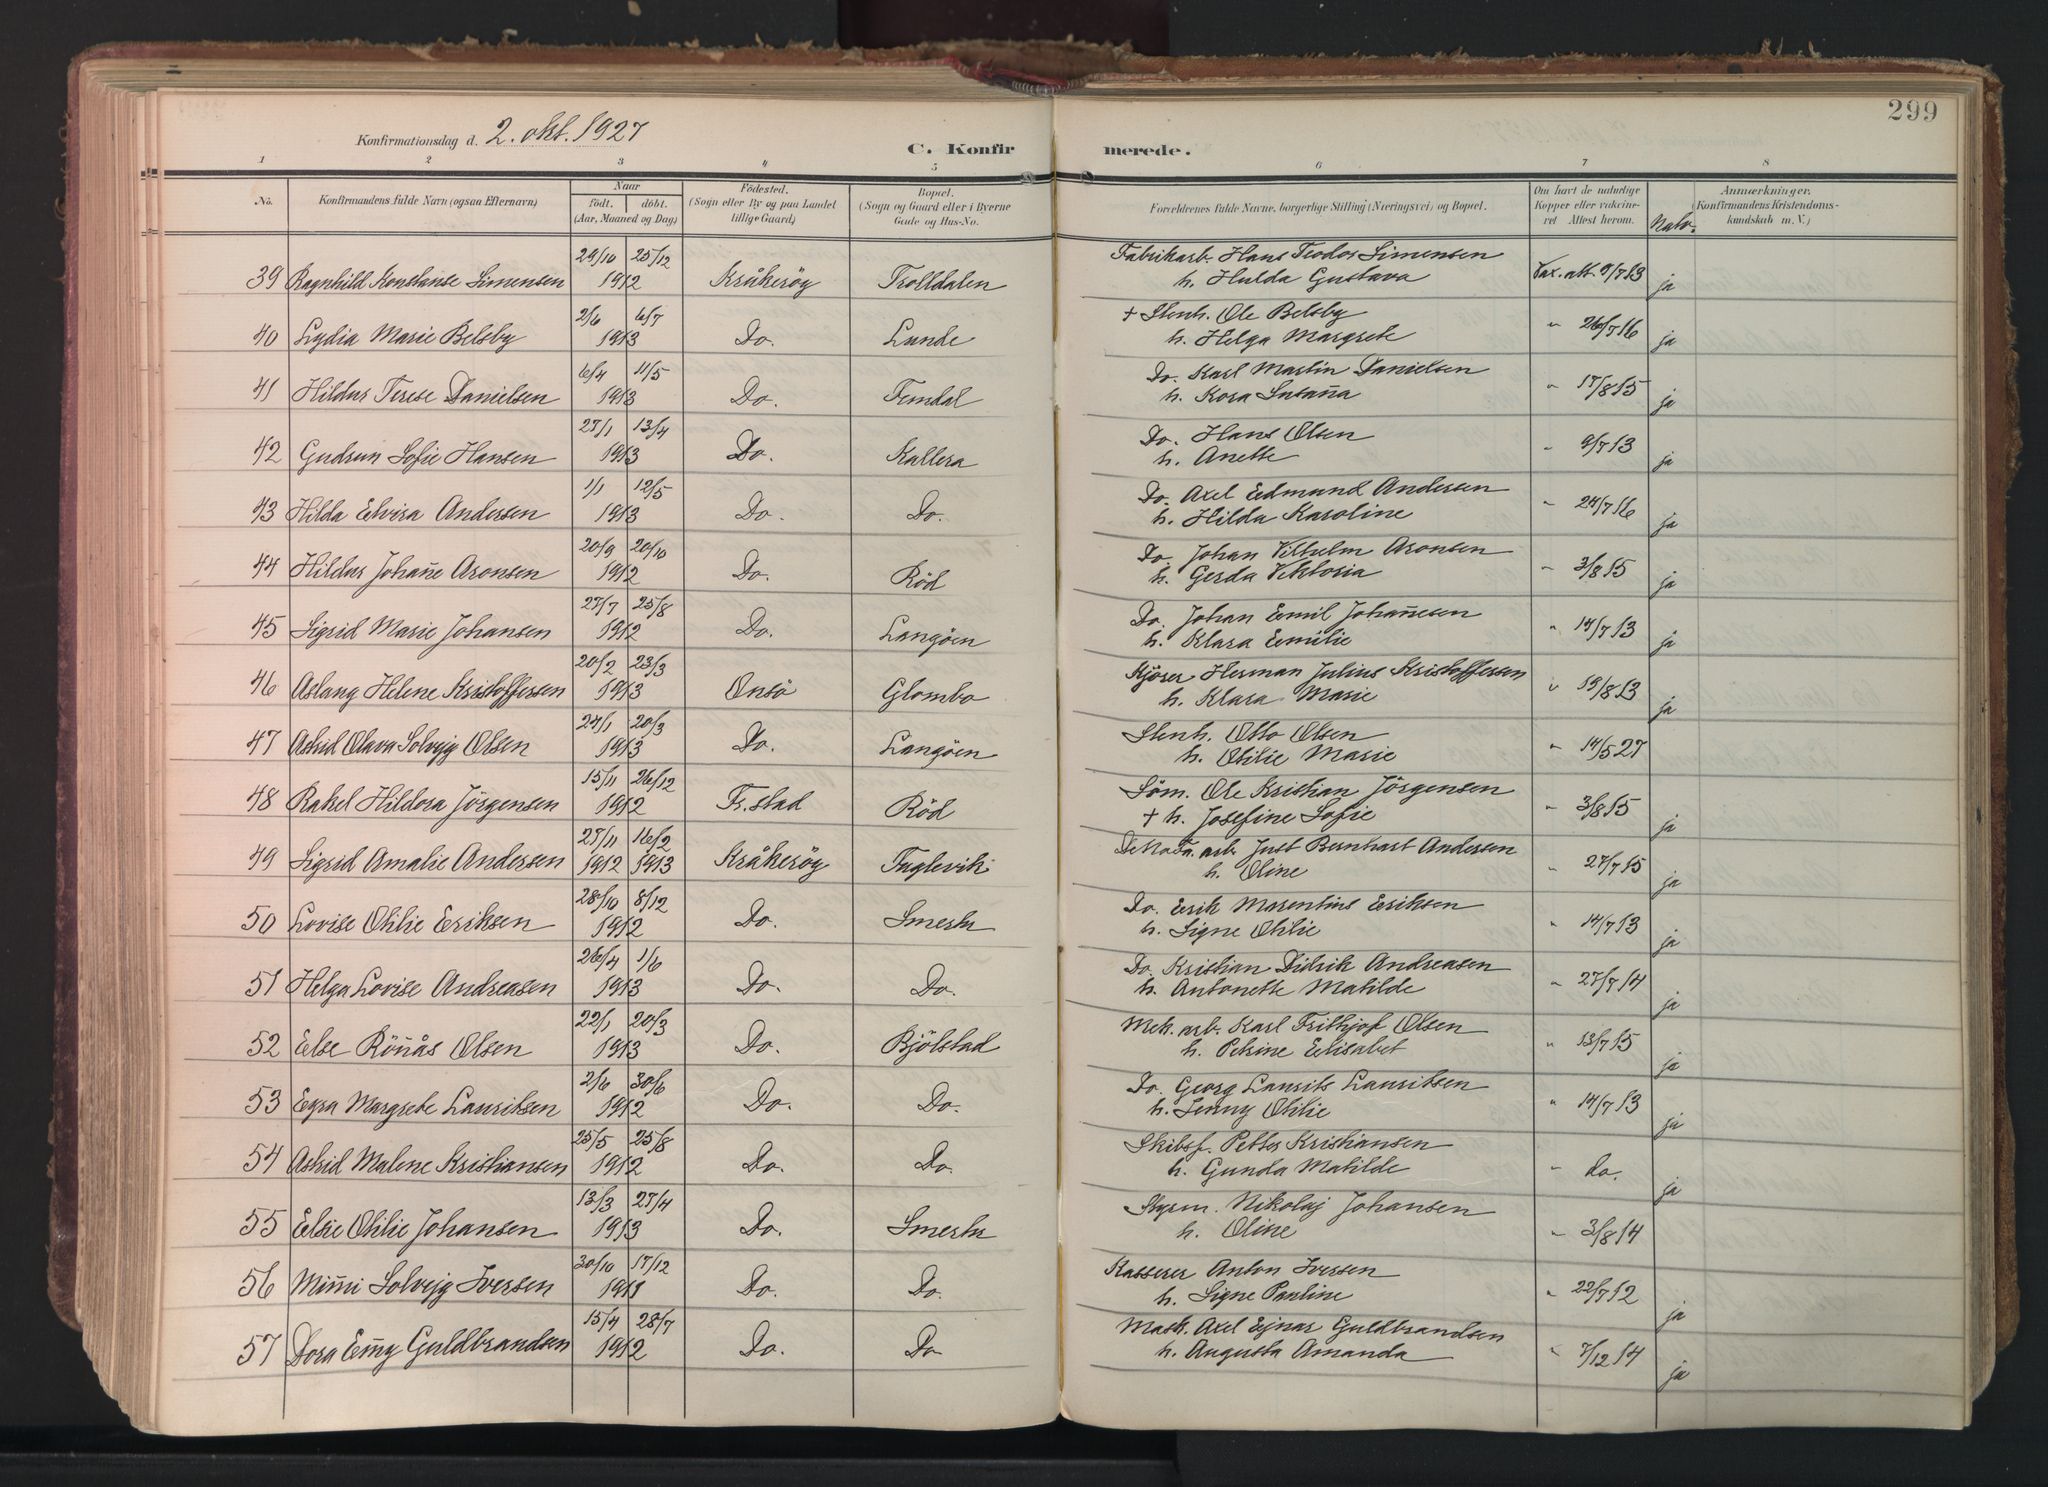 299
Konfirmationsdag d. 2. okt. 1927
C. Konfirmerede.
1 2 3 4 5 6 7 8
No. Konfirmandens fulde Navn (ogsaa Efternavn) Naar födt. döbt. (Aar, Maaned og Dag) Födested. (Sogn eller By og paa Landet tillige Gaard) Bopæl. (Sogn og Gaard eller i Byerne Gade og Hus-No. Forældrenes fulde Navne, borgerlige Stilling (Næringsvei) og Bopæl. Om havt de naturlige Kopper eller vakcineret Attest herom. Anmærkninger. (Konfirmandens Kristendomskundskab m. V.)
29/10 25/12 Fabrikarb. Hans Teodor Simensen
39 Ragnhild Konstanse Simensen 1912 Kråkeröy Trolldalen h. Hulda Gustava Vax. att. 9/7 13 ja
2/6 6/7 + Stenh. Ole Belsby
40 Lydia Marie Belsby 1913 Do. Lunde h. Helga Margrete " 26/7 16 ja
6/4 11/5 Do. Karl Martin Danielsen
41 Hildur Terese Danielsen 1913 Do. Femdal h. Kora Susaña " 17/8 15 ja
27/1 13/4 Do. Hans Olsen
42 Gudrun Sofie Hansen 1913 Do. Kallera h. Anette " 9/7 13 ja
1/1 12/5 Do. Axel Edmund Andersen
43 Hilda Elvira Andersen 1913 Do. Do. h. Hilda Karoline " 24/7 16 ja
20/9 20/10 Do. Johan Vilhelm Aronsen
44 Hildur Johañe Aronsen 1912 Do. Röd h. Gerda Viktoria " 3/8 15 ja
27/7 25/8 Do. Johan Emil Johañesen
45 Sigrid Marie Johansen 1912 Do. Langöen h. Klara Emilie " 14/7 13 ja
20/2 23/3 Kjörer Herman Julius Kristoffersen
46 Aslaug Helene Kristoffersen 1913 Onsö Glombo h. Klara Marie " 19/8 13 ja
24/1 20/3 Stenh. Otto Olsen
47 Astrid Olava Solvejg Olsen 1913 Do. Langöen h. Otilie Marie " 14/5 27 ja
15/11 26/12 Söm. Ole Kristian Jörgensen
48 Rakel Hildora Jörgensen 1912 Fr.stad Röd + h. Josefine Sofie " 3/8 15 ja
27/11 16/2 Fa. arb. Just Bernhart Andersen
49 Sigrid Amalie Andersen 1912 1913 Kråkeröy Fuglevik h. Oline " 27/7 15 ja
28/10 8/12 Do. Erik Marentius Eriksen
50 Lovise Otilie Eriksen 1912 Do. Smertu h. Signe Otilie " 14/7 13 ja
26/4 1/6 Do. Kristian Didrik Andreasen
51 Helga Lovise Andreasen 1913 Do. Do. h. Antonette Matilde " 27/7 14 ja
22/1 20/3 Mek. arb. Karl Frithjof Olsen
52 Else Röñås Olsen 1913 Do. Bjölstad h. Petrine Elisabet " 13/7 15 ja
2/6 30/6 Do. Georg Laurits Lauritsen
53 Egra Margrete Lauritsen 1912 Do. Do. h. Jenny Otilie " 14/7 13 ja
25/5 25/8 Skibsf. Petter Kristiansen
54 Astrid Malene Kristiansen 1912 Do. Do. h. Gunda Matilde " Do. ja
13/3 27/4 Styrm. Nikolaj Johansen
55 Elsie Otilie Johansen 1913 Do. Smertu h. Oline " 3/8 14 ja
30/10 17/12 Kasserer Anton Iversen
56 Miñi Solvejg Iversen 1911 Do. Do. h. Signe Pauline " 22/7 12 ja
15/4 28/7 Mask. Axel Ejnar Guldbrandsen
57 Dora Em̃y Guldbrandsen 1912 Do. Do h. Augusta Amanda " 7/12 14 ja